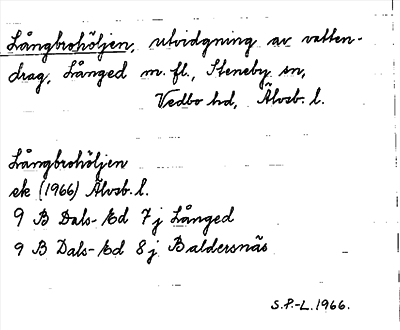 Långbrohöljen, utvidgning av vatten-
drag, Långed m. fl., Steneby sn,
Vedbo hd, Älvsb. l.
Långbrohöljen
ek (1966) Älvsb. l.
9 B Dals-Ed 7j Långed
9 B Dals-Ed 8j Baldersnäs
S.P.-L. 1966.